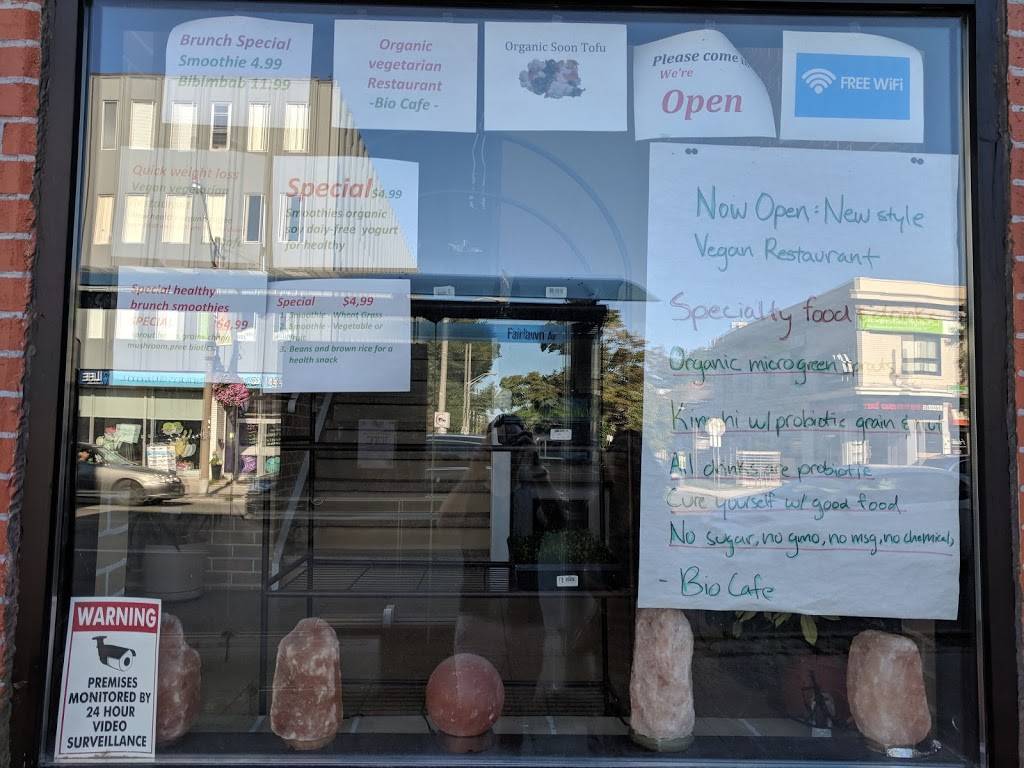 Brunch Special
Smoothie 4.99
Bibimbab 11.99
Organic
vegetarian
Restaurant
-Bio Cafe -
Organic Soon Tofu
Please come
We're
Open
FREE WiFi
Quick weight loss
Vegan vegetarian
Special $4.99
Smoothies organic
soy daiy-free yogurt
for healthy
Special healthy
brunch smoothies
SPECIAL $4.99
mushroom,pree biotics
Special $4,99
1. Smoothie - Wheat Grass
2. Smoothie - Vegetable or
3. Beans and brown rice for a
health snack
Fairlawn Av
Now Open: New style
Vegan Restaurant
Specially food & drinks
Organic microgreen sprouts
Kimchi w/ probiotic grain &
All drinks are probiotic
Cure yourself w/ good food.
No sugar, no gmo, no msg, no chemical,
- Bio Cafe
WARNING
PREMISES
MONITORED BY
24 HOUR
VIDEO
SURVEILLANCE